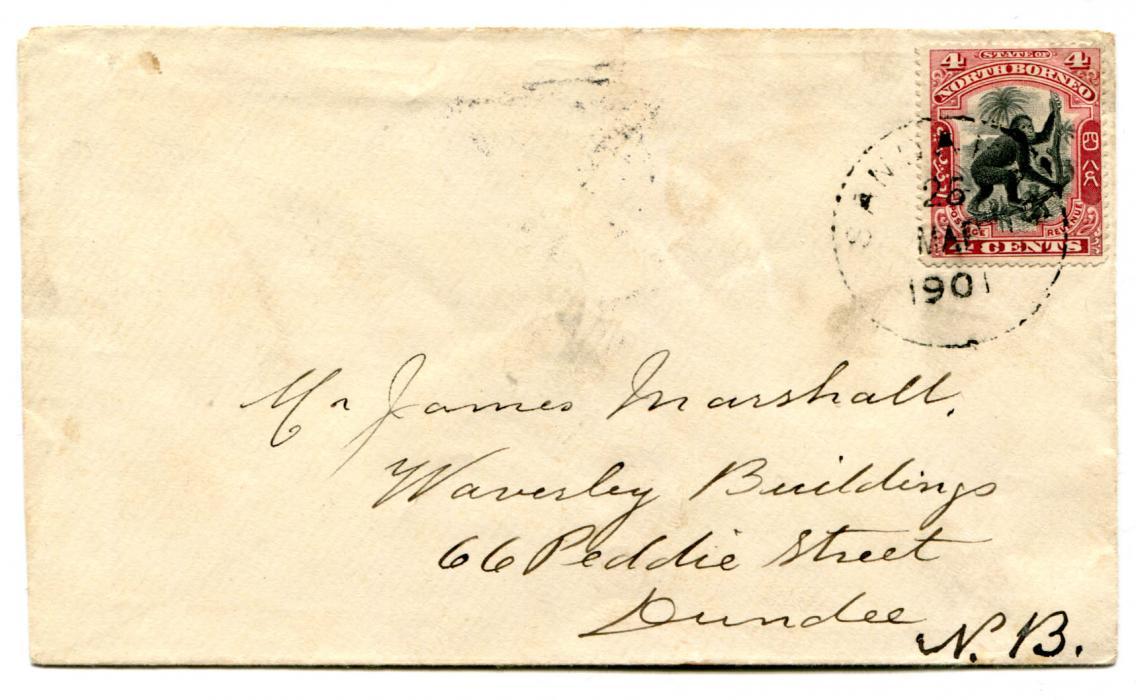 4 STATE OF 4
NORTH BORNEO
POSTAGE REVENUE
4 CENTS
26
MAR
1901
Mr James Marshall.
Waverley Buildings
66 Peddie Street
Dundee
N.B.